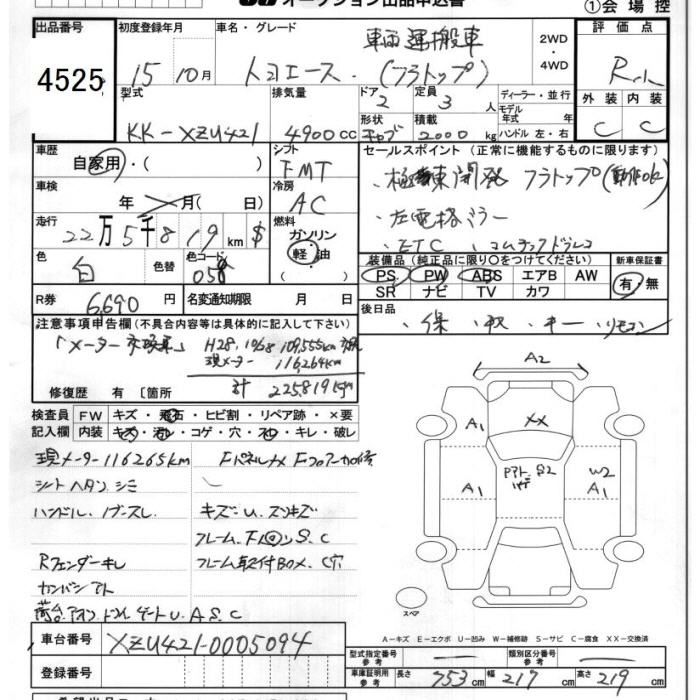 オークション出品申込書
①会場控
出品番号
4525
初度登録年月
15年 10月
車名・グレード
車両運搬車
トヨエース (フラトップ)
2WD・4WD
評価点
R
外装 内装
C C
型式
KK-XZU421
排気量
4900cc
ドア
2
形状
キャブ
定員
3人
積載
2000kg
ディーラー・並行
モデル
年式 年
ハンドル 左・右
車歴
自家用・( )
車検
年 月( 日)
走行
22万5千819km $
色
白
色替
色コード
058
R券
6,690円
名変通知期限 月 日
シフト
FMT
冷房
AC
燃料
ガソリン
軽油
( )
セールスポイント (正常に機能するものに限ります)
・極東開発 フラトップ(動作OK)
・左電格ミラー
・ETC ・コムテックドラレコ
装備品 (純正品に限り○をつけてください)
PS PW ABS エアB AW
SR ナビ TV カワ
新車保証書
有・無
後日品
・保・取・キー・リモコン
注意事項申告欄(不具合内容等は具体的に記入して下さい)
「メーター交換車」 H28.10/68 109,555km
現メーター 116,264km
計 225819km
修復歴 有 〔箇所
検査員記入欄
FW キズ・飛石・ヒビ割・リペア跡・×要
内装 キズ・汚レ・コゲ・穴・スレ・キレ・破レ
現メーター116265km
シートヘタン、シミ
ハンドル、
Rフェンダーキレ
キズU、スリキズ
フレーム、F S、C
フレーム取付BOX、C穴
荷台 ゲートU、A、S、C
A2
XX
A1
A1
W2
A1
スペア
A-キズ E-エクボ U-凹み W-補修跡 S-サビ C-腐食 XX-交換済
車台番号
XZU421-0005094
登録番号
型式指定番号 参考
類別区分番号 参考
車庫証明用 参考
長さ 753cm 幅 217cm 高さ 219cm